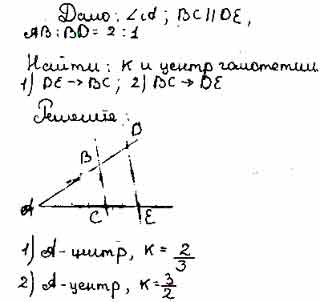 Дано: ∠A; BC||DE,
AB:BD=2:1
Найти: К и центр гомотетии
1) DE→BC; 2) BC→DE
Решение:
D
B
A
C
E
1) A-центр, К=2/3
2) A-центр, К=3/2